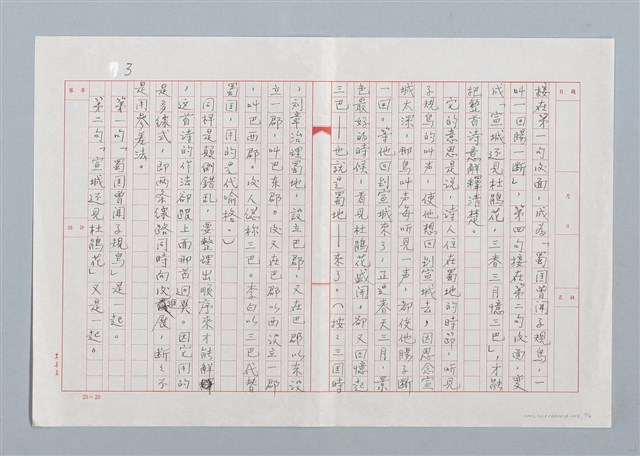 3
接在第一句後面，成為「蜀国曾聞子規鳥，一
叫一回腸一断」，第四句接在第二句後面，变
成「宣城还見杜鵑花，三春三月憶三巴」，才能
把整首诗意解釋清楚。
它的意思是说，诗人住在蜀地的時節，听見
子規鳥的叫声，使他想回到宣城去，因思念宣
城太深，那鳥叫声每听見一声，都使他腸子断
一回。等他回到宣城來了，正逢春天三月，景
色最好的時候，看見杜鵑花盛開，卻又回憶起
三巴——也就是蜀地——來了。（按：三国時
，刘璋治理蜀地，設立巴郡，又在巴郡以东设
立一郡，叫巴东郡。後又在巴郡以西设立一郡
，叫巴西郡。後人总称三巴。李白以三巴代替
蜀国，用的是代喻格。）
同样是顛倒錯乱，要整理出順序來才能解
，这首诗的作法卻跟上面那首迥異。因它用的
是多線式，即两条線路同時向後進展，断断不
是用參差法。
第一句「蜀国曾聞子規鳥」是一起。
第二句「宣城还見杜鵑花」又是一起。
20×20